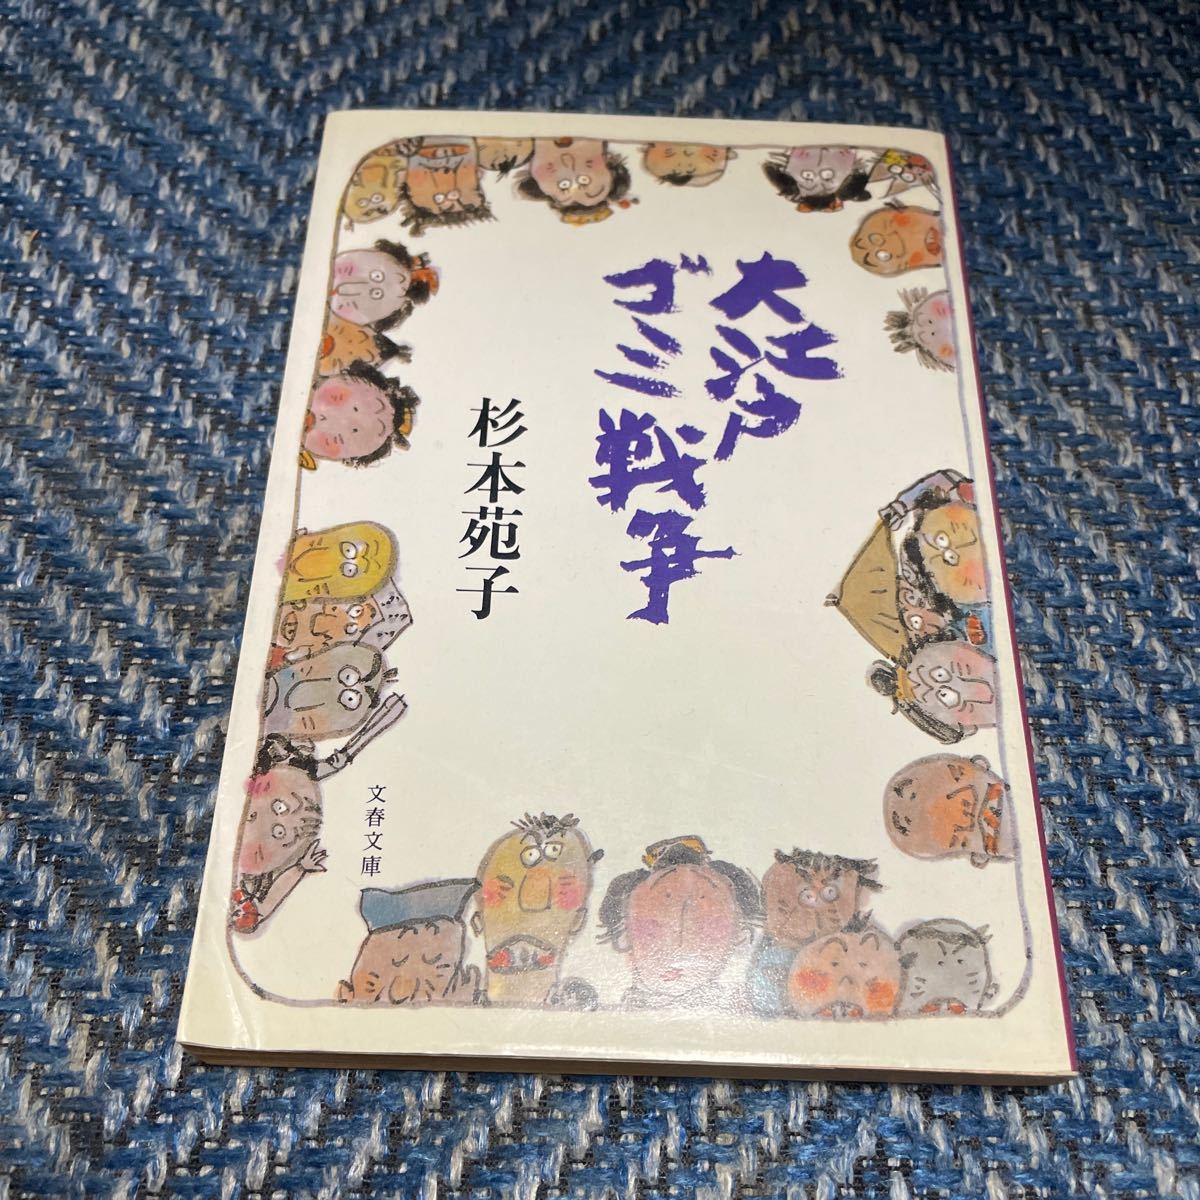 大江戸
ゴミ戦争
杉本苑子
文春文庫